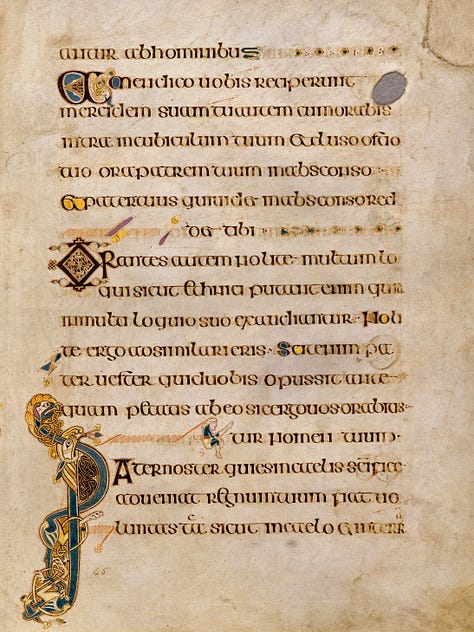 antur abhominibus
Amen dico uobis reciperunt
mercidem suam tu autem cum orabis
intra incubiculum tuum & cluso ostio
tuo ora patrem tuum inabsconso
& pater tuus qui uidet inabsconso red
det tibi
Orantes autem nolite multum lo
qui sicut ethnici putant enim quia
inmulta loquio suo exaudiantur · Noli
te ergo adsimilari eis · Scit enim pa
ter uester quid uobis opus sit ante
quam petatis ab eo sic ergo uos orabitis
tur nomen tuum ·
Pater noster qui es incaelis scifice
adueniat regnum tuum fiat uo
luntas tua sicut incaelo & interra
45